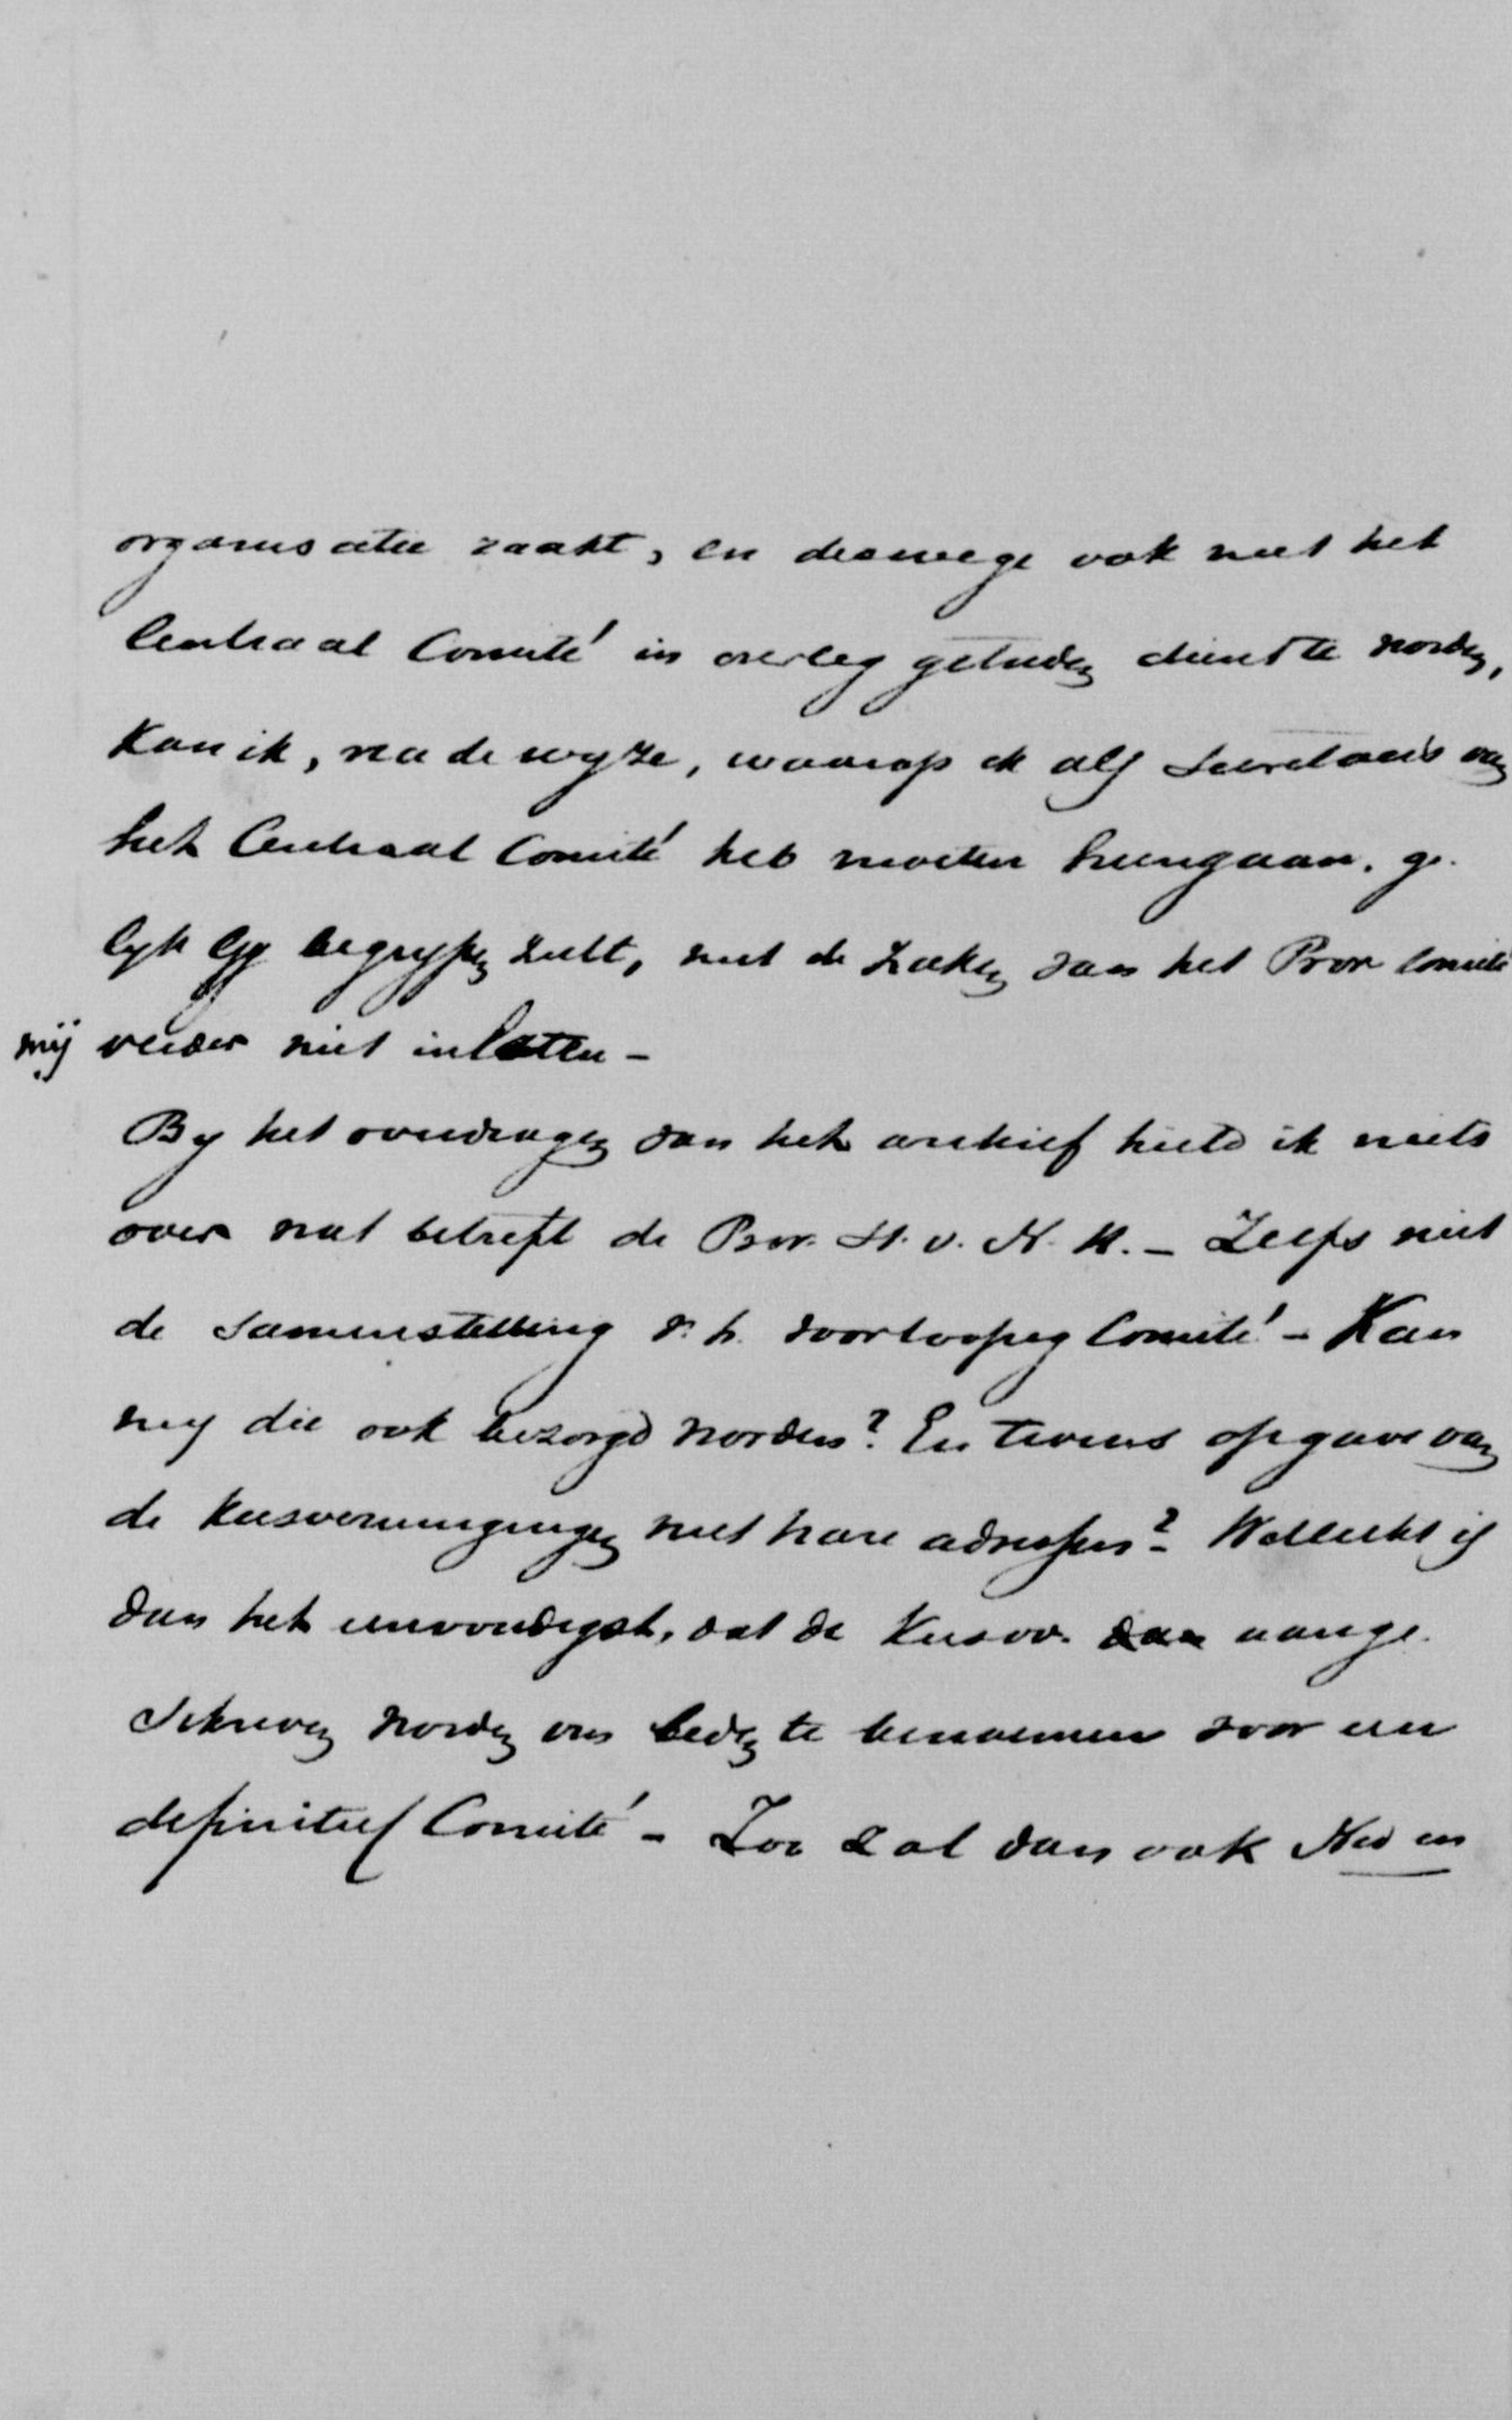 organisatie raakt, en deswege ook met het
Centraal Comité in overleg getreden diend te worden,
kan ik, na de wyze, waarop ik als Secretaris van
het Centraal Comité heb moeten heengaan, ge-
lyk Gy begrypen zult, met de zaken van het Prov Comité
mij verder niet inlaten -
By het overdragen van het archief hield ik niets
over wat betreft de Prov. St. v. N. H. - Zelfs niet
de samenstelling v. h. voorloopig Comité - Kan
my die ook bezorgd worden? En tevens opgave van
de Kiesvereenigingen met hare adressen? - Wellicht is
dan het eenvoudigst, dat de Kiesvv. aange-
schreven worden om leden te benoemen voor een
definitief Comité - Zoo zal dan ook Ned en